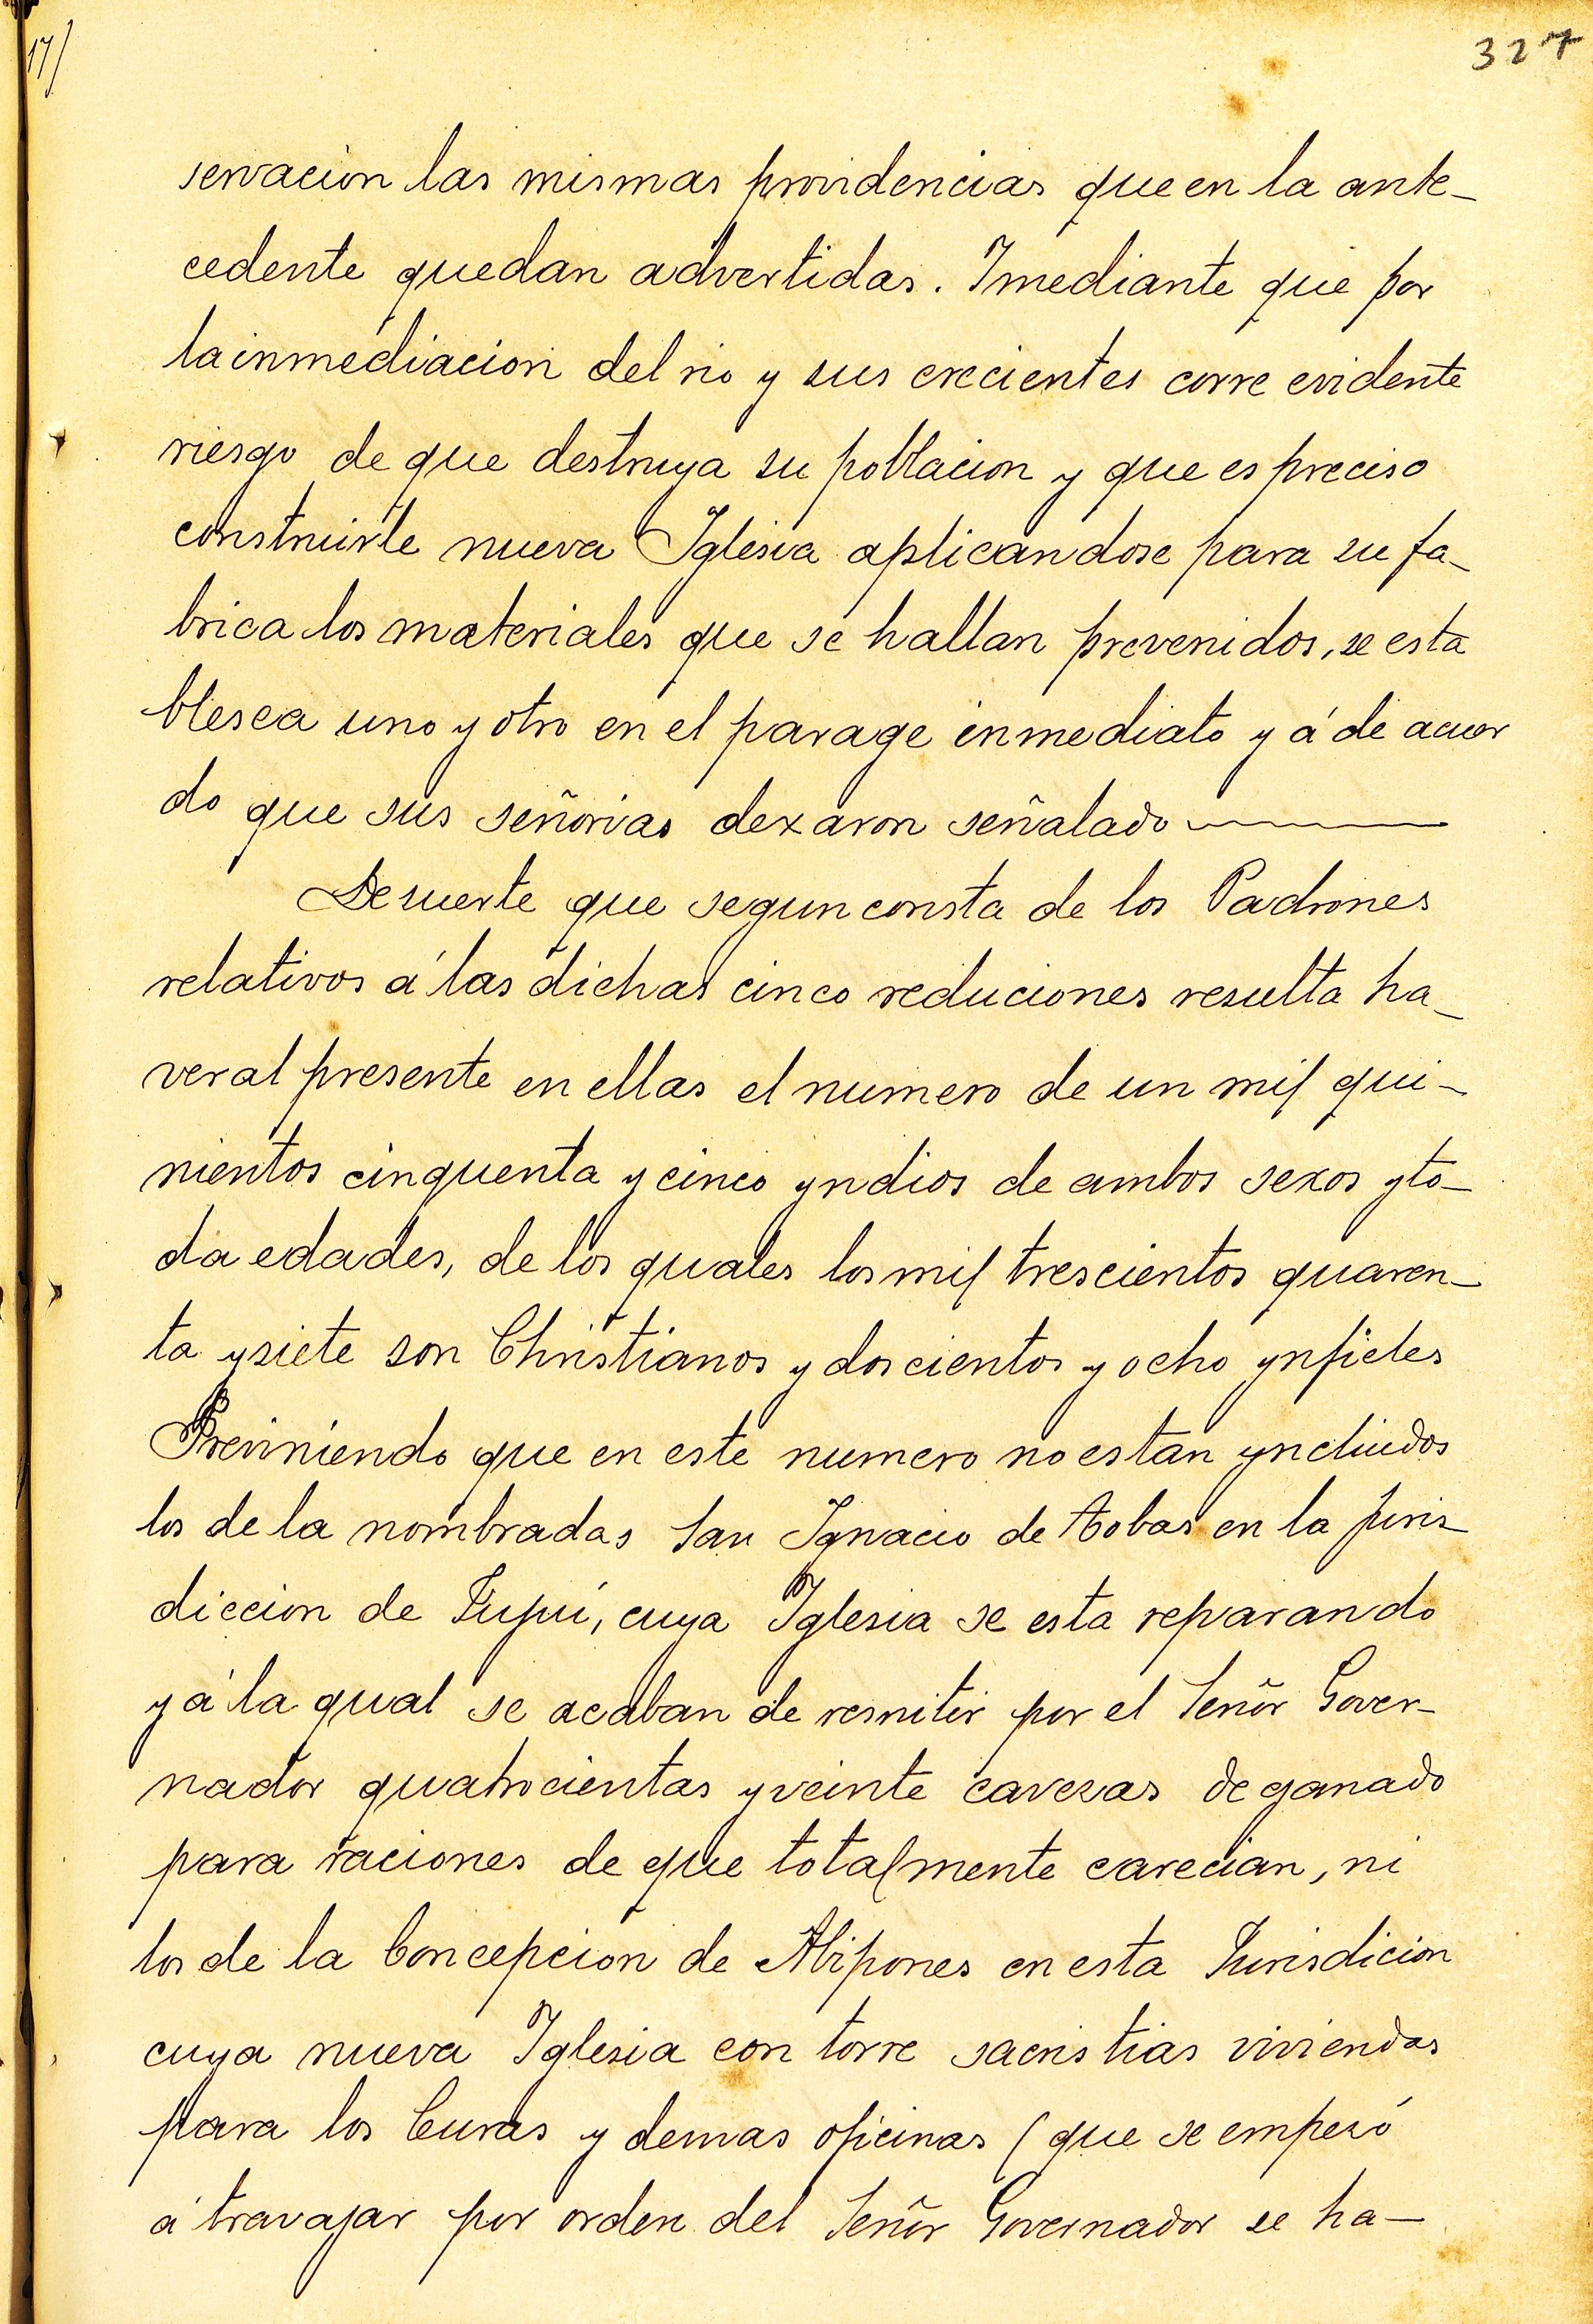 17/
327
servacion las mismas providencias que en la ante-
cedente quedan advertidas. Imediante que por
la inmediacion del rio y sus crecientes corre evidente
riesgo de que destruya su poblacion y que es preciso
construirle nueva Iglesia aplicandose para su fa-
brica los materiales que se hallan prevenidos, se esta
blesca uno y otro en el parage inmediato y á de acuer
do que sus señorias dexaron señalado
De suerte que segun consta de los Padrones
relativos á las dichas cinco reduciones resulta ha-
ver al presente en ellas el numero de un mil qui-
nientos cinquenta y cinco yndios de ambos sexos y to-
da edades, de los quales los mil trescientos quaren-
ta y siete son Christianos y doscientos y ocho ynfieles
Previniendo que en este numero no estan yncluidos
los de la nombradas San Ignacio de Tobas en la juris-
diccion de Jujuí, cuya Iglesia se esta reparando
y á la qual se acaban de remitir por el Señor Gover-
nador quatrocientas y veinte cavezas de ganado
para raciones de que totalmente carecian, ni
los de la Concepcion de Abipones en esta Jurisdicion
cuya nueva Iglesia con torre sacristias viviendas
para los Curas y demas oficinas (que se empezó
á travajar por orden del Señor Governador se ha-